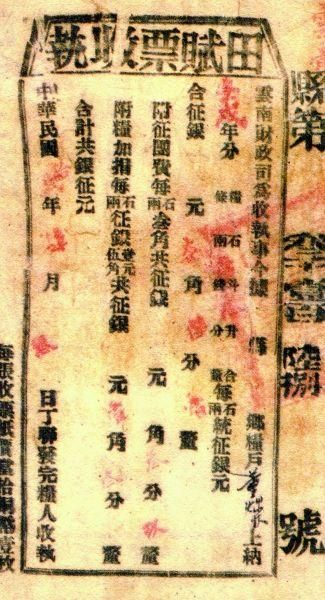 田賦票收執
縣第 　 壹陸捌 號
雲南財政司為收執事今據 鄉糧戶 上納
年分 糧 石 斗 升 合 每石
條 兩 錢 分 釐 每兩 統征銀 元
合征銀 元 角 分 釐
附征團費每石兩叁角共征銀 元 角 分 釐
附糧加捐每石兩征銀壹元伍角共征銀 元 角 分 釐
合計共銀征元
中華民國 年 月 日丁聯發完糧人收執
每張收票紙價當拾銅幣壹枚